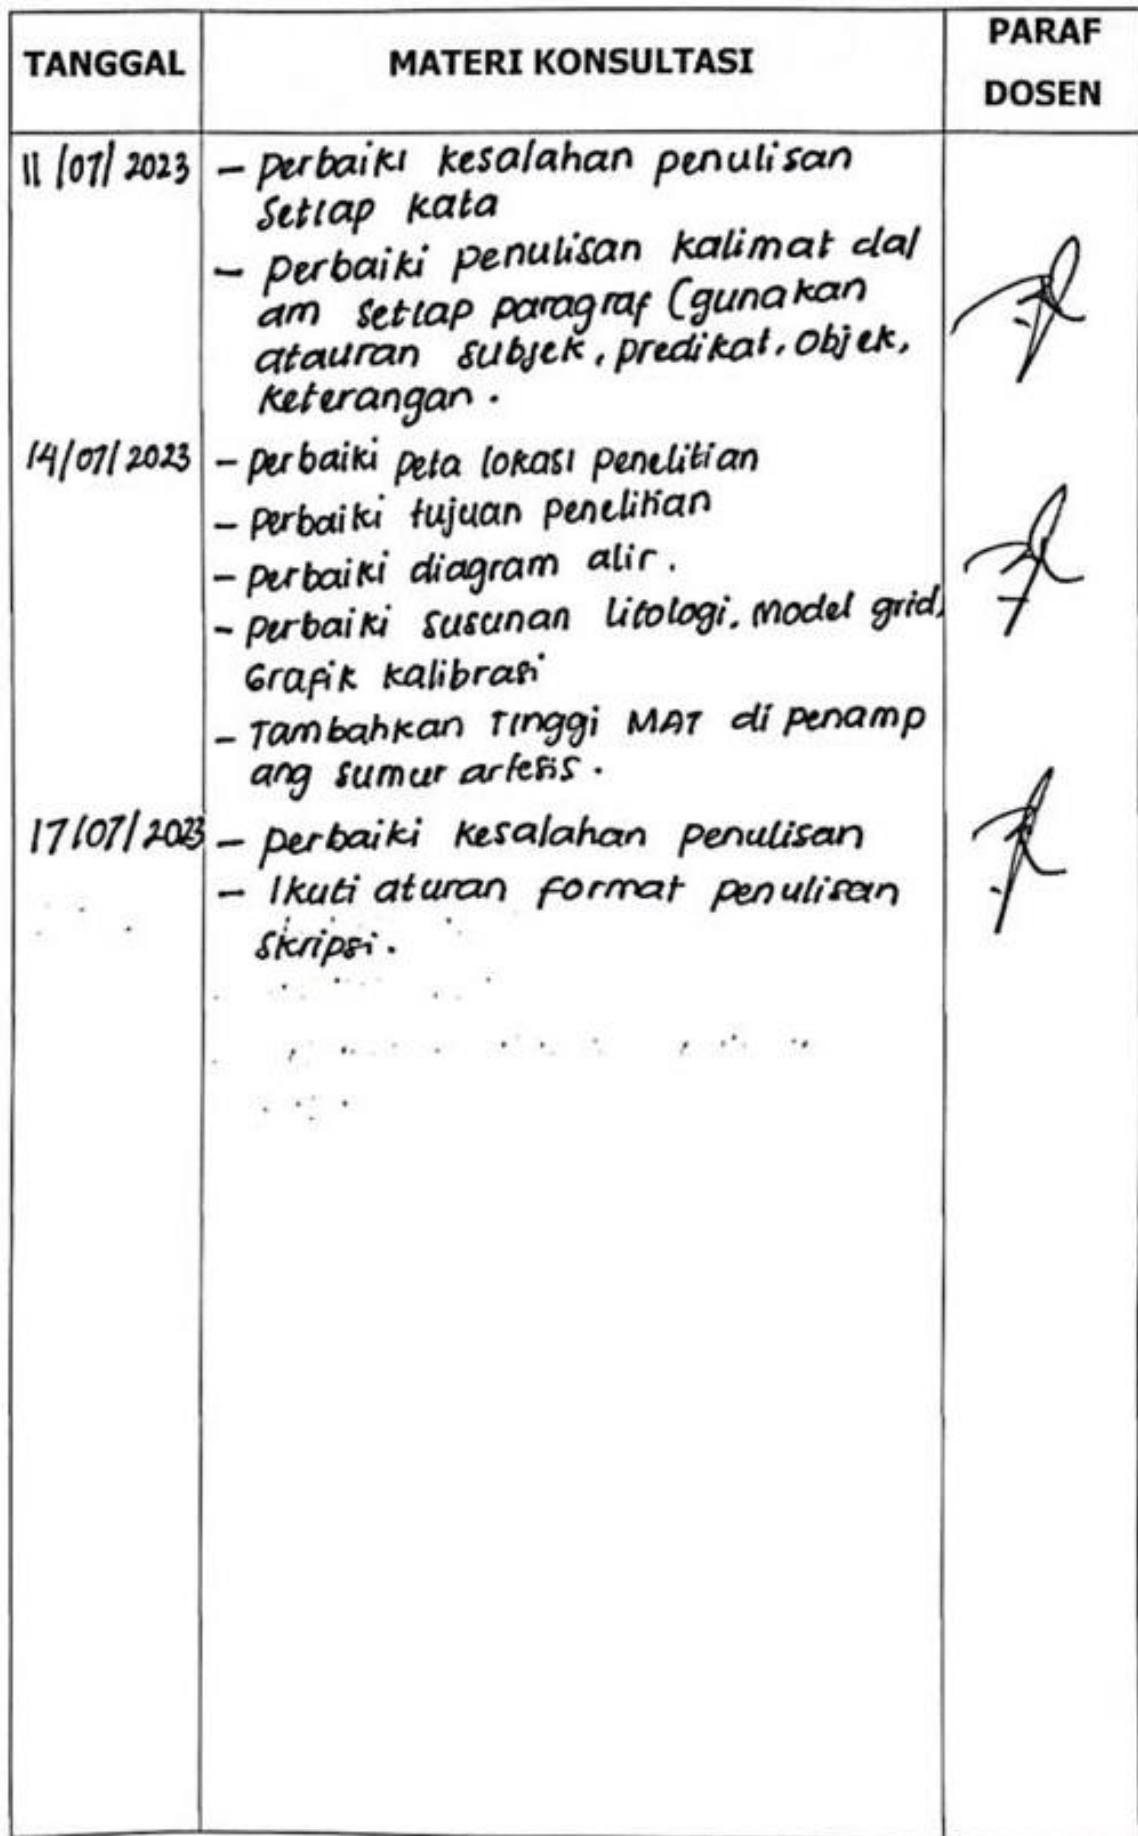 TANGGAL MATERI KONSULTASI PARAF DOSEN
11/07/2023 - perbaiki kesalahan penulisan
Setiap kata
- perbaiki penulisan kalimat dal
am setiap paragraf (gunakan
atauran subjek, predikat, objek,
keterangan.
14/07/2023 - perbaiki peta lokasi penelitian
- perbaiki tujuan penelitian
- perbaiki diagram alir.
- perbaiki susunan litologi, model grid,
Grafik kalibrasi
- Tambahkan Tinggi MAT di penamp
ang sumur artesis.
17/07/2023 - perbaiki kesalahan penulisan
- Ikuti aturan format penulisan
skripsi.